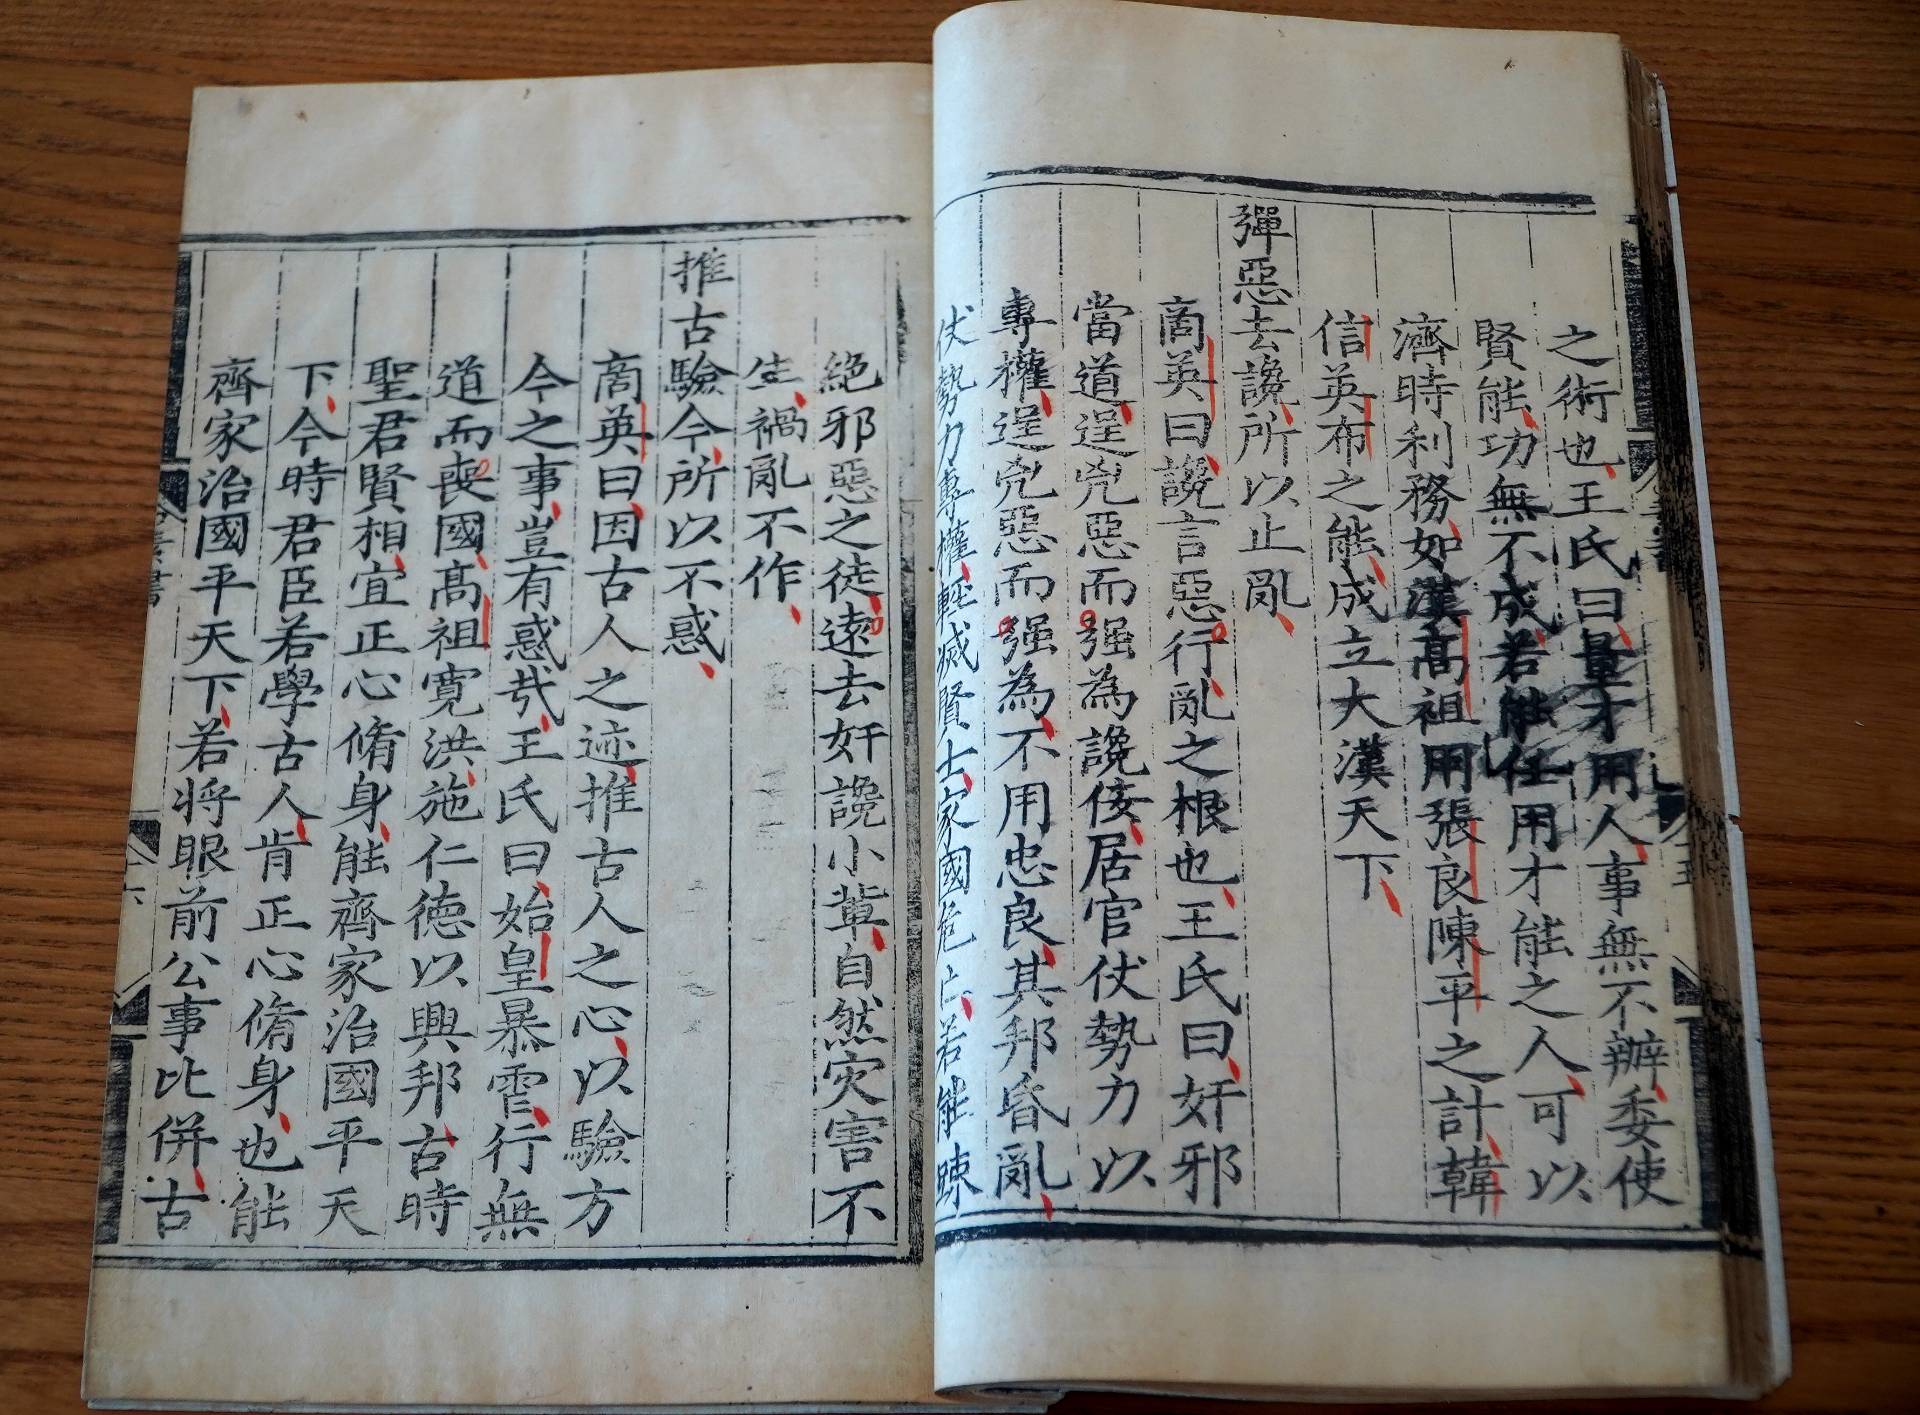 之術也王氏曰量才用人事無不辦委使
賢能功無不成若能任用才能之人可以
濟時利務如漢高祖用張良陳平之計韓
信英布之能成立大漢天下
彈惡去讒所以止亂
商英曰讒言惡行亂之根也王氏曰奸邪
當道逞兇惡而强為讒佞居官仗勢力以
專權逞兇惡而强為不用忠良其邦昏亂
仗勢力專權輕滅賢士家國危亡若能踈
絕邪惡之徒遠去奸讒小軰自然灾害不
生禍亂不作
推古驗今所以不惑
商英曰因古人之迹推古人之心以驗方
今之事豈有惑㢤王氏曰始皇暴虐行無
道而喪國高祖寛洪施仁德以興邦古時
聖君賢相宜正心脩身能齊家治國平天
下今時君臣若學古人肯正心脩身也能
齊家治國平天下若将眼前公事比併古